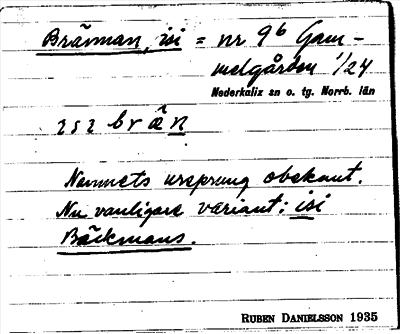 Brännman, isi = nr 9b Gam-
melgården 1/24
Nederkalix sn o. tg. Norrb. län
Namnets ursprung obekant.
Nu vanligare variant: isi
Bäckmans.
RUBEN DANIELSSON 1935